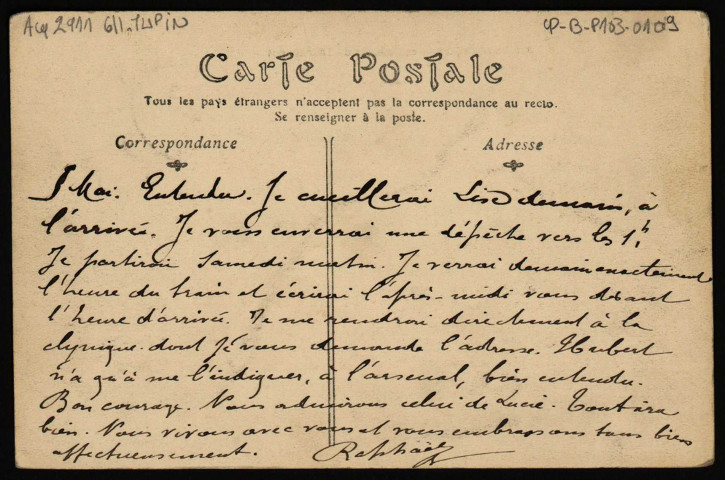 Acq 2911 G/I. LUPIN
CP-B-P103-0109
Carte Postale
Tous les pays étrangers n'acceptent pas la correspondance au recto.
Se renseigner à la poste.
Correspondance
Adresse
Mai. Entendu. Je cueillerai Lise demain, à
l'arrivée. Je vous enverrai une dépêche vers les 1h.
Je partirai Samedi matin. Je verrai demain exactement
l'heure du train et écrirai l'après-midi vous disant
l'heure d'arrivée. Je me rendrai directement à la
clynique dont je vous demande l'adresse. Hubert
n'a qu'à me l'indiquer, à l'arsenal, bien entendu.
Bon courage. Nous admirons celui de Lucie. Tout ira
bien. Nous vivons avec vous et vous embrassons tous bien
affectueusement. Raphaël